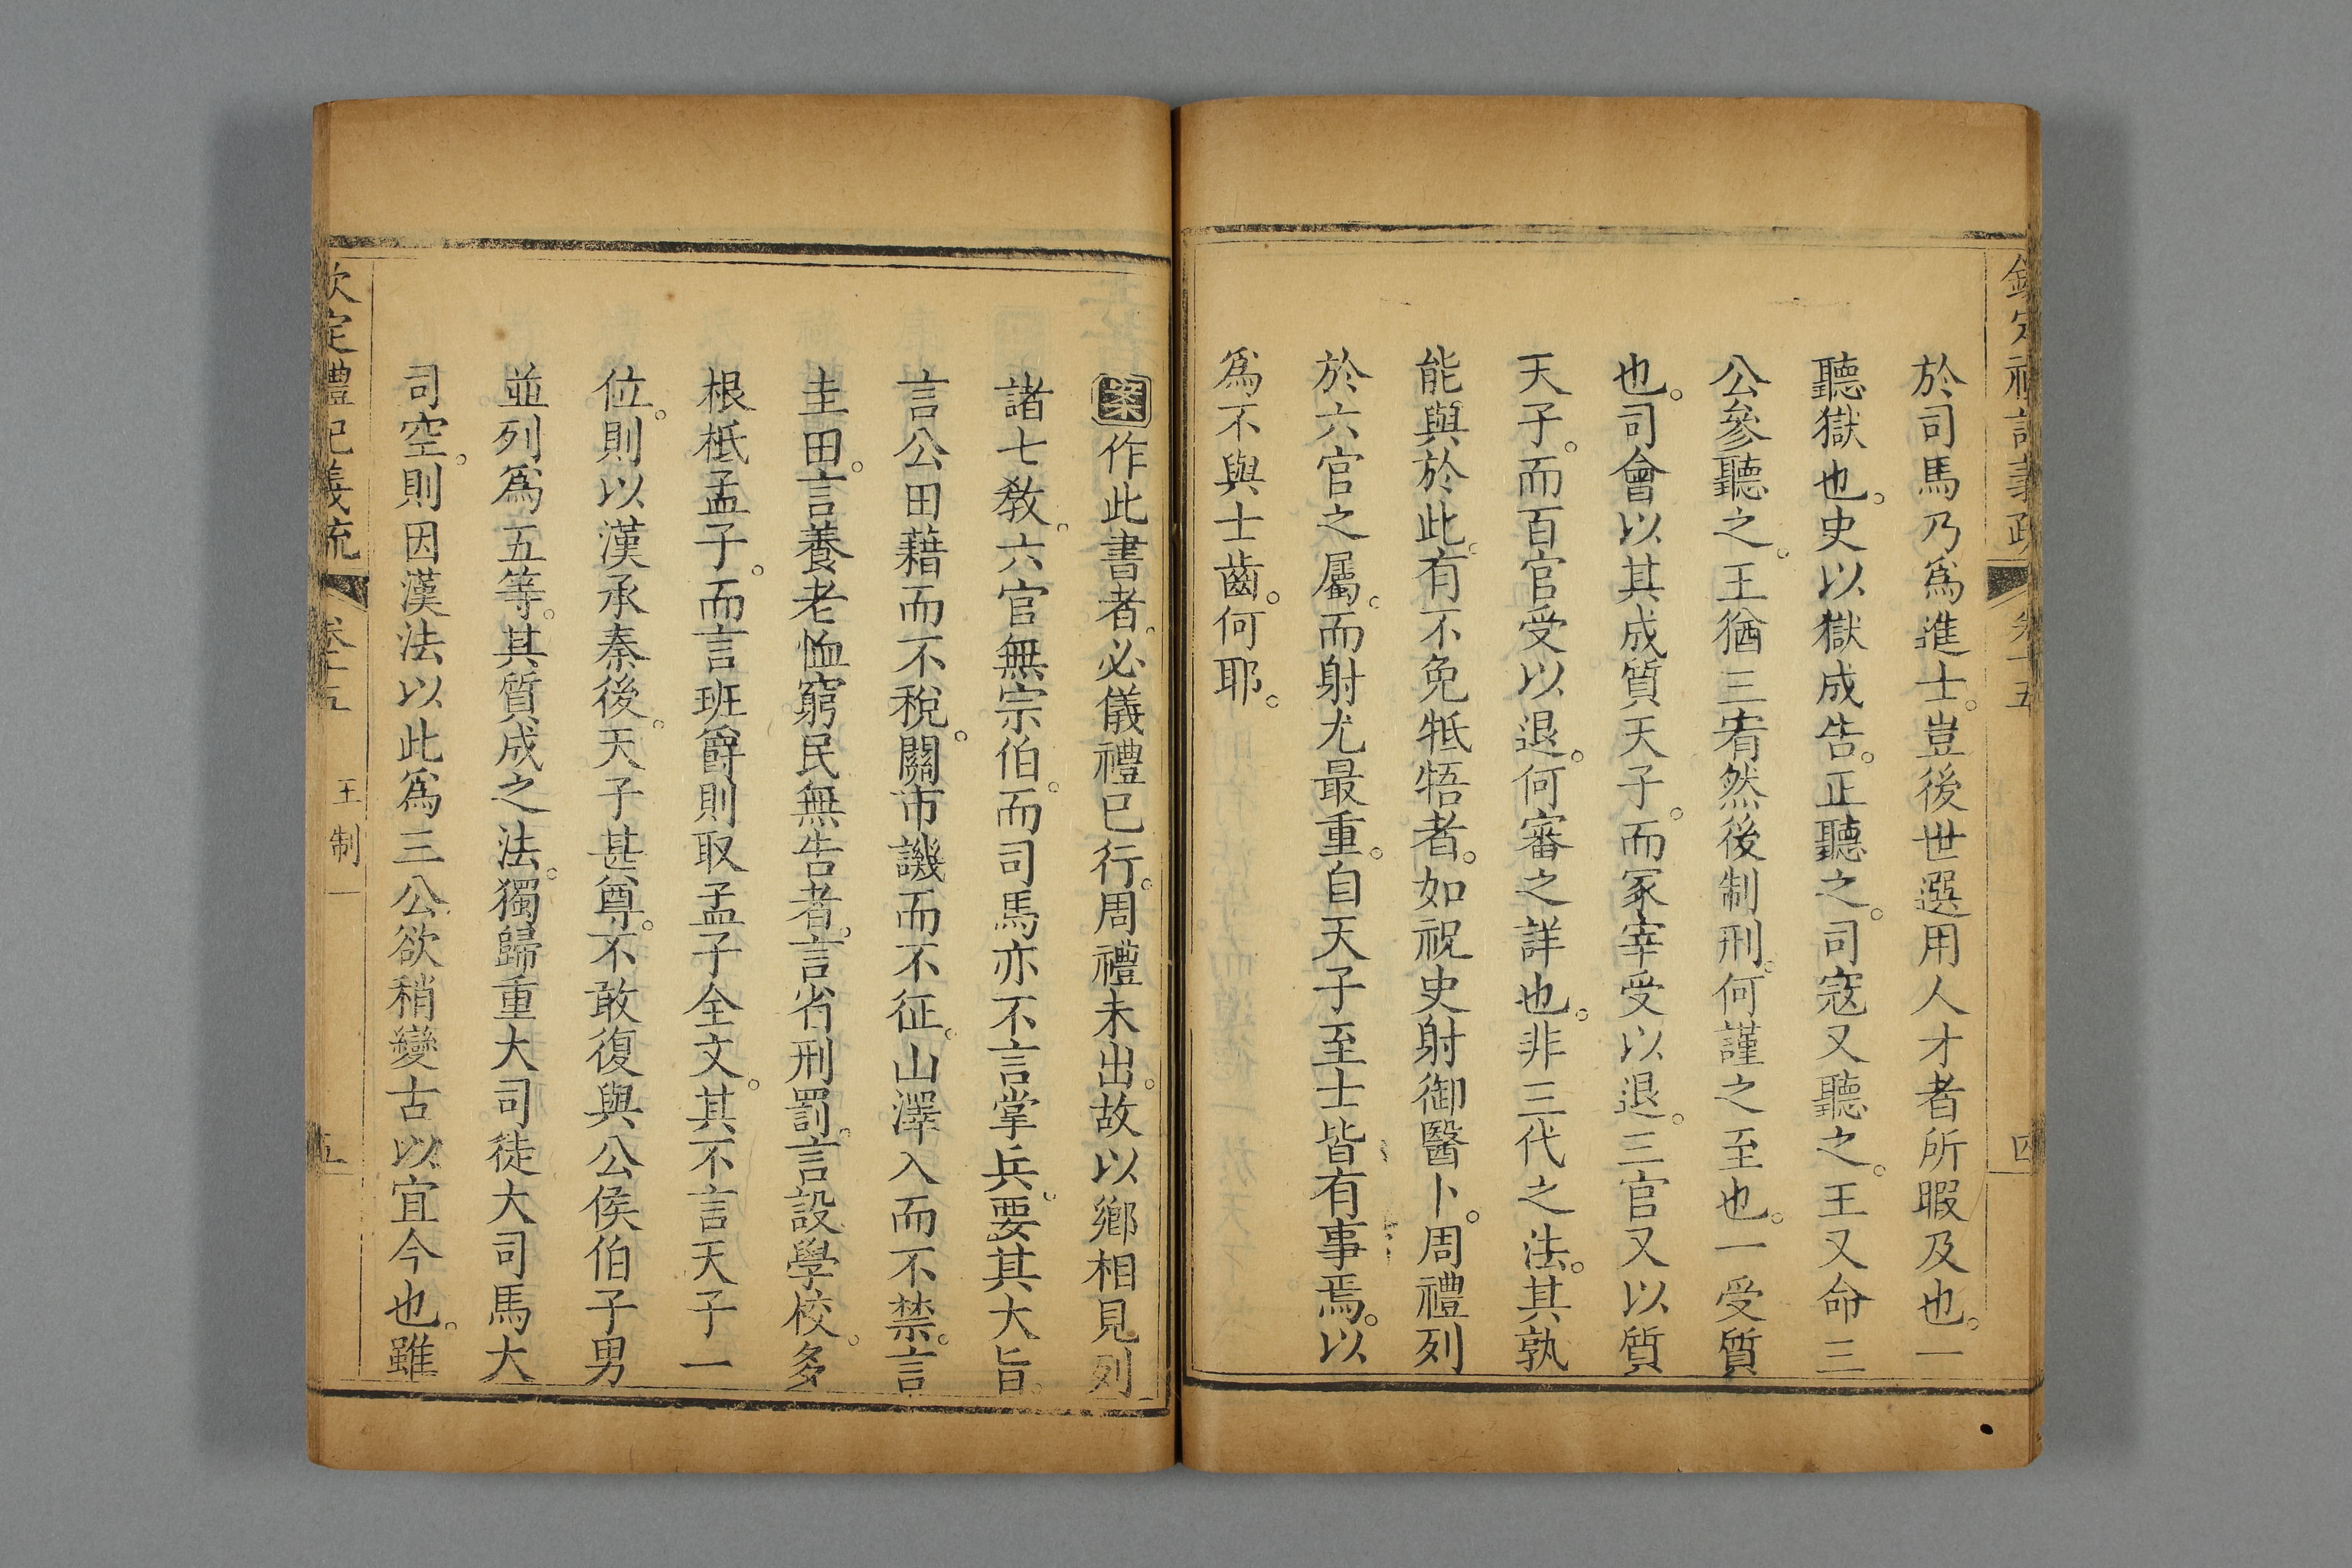 欽定禮記義疏 卷十五 四
於司馬乃爲進士。豈後世選用人才者所暇及也。一
聽獄也。史以獄成告。正聽之。司寇又聽之。王又命三
公參聽之。王猶三宥然後制刑。何謹之至也。一受質
也。司會以其成質天子。而冢宰受以退。三官又以質
天子。而百官受以退。何審之詳也。非三代之法。其孰
能與於此。有不免牴牾者。如祝史射御醫卜。周禮列
於六官之屬。而射尤最重。自天子至士皆有事焉。以
爲不與士齒。何耶。
案作此書者。必儀禮已行。周禮未出。故以鄉相見列
諸七敎。六官無宗伯。而司馬亦不言掌兵。要其大旨。
言公田藉而不稅。關市譏而不征。山澤入而不禁。言
圭田。言養老恤窮民無告者。言省刑罰。言設學校。多
根柢孟子。而言班爵則取孟子全文。其不言天子一
位。則以漢承秦後。天子甚尊。不敢復與公侯伯子男
並列爲五等。其質成之法。獨歸重大司徒大司馬大
司空。則因漢法以此爲三公欲稍變古以宜今也。雖
欽定禮記義疏 卷十五 王制一 五